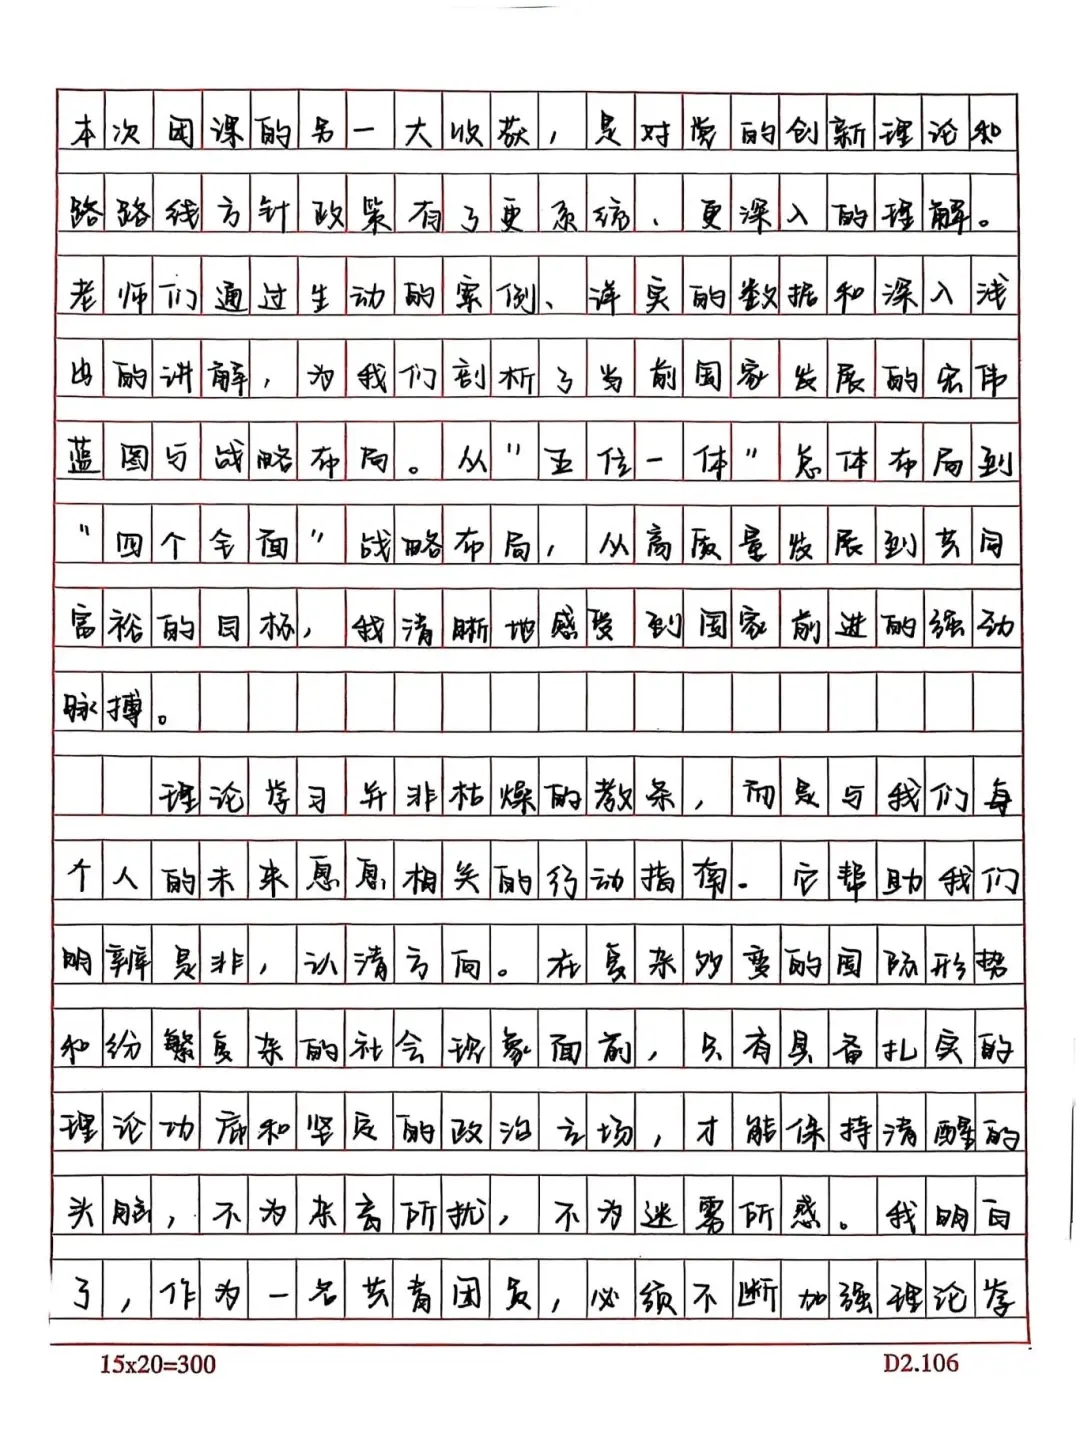 本次团课的另一大收获，是对党的创新理论和
路路线方针政策有了更系统、更深入的理解。
老师们通过生动的案例、详实的数据和深入浅
出的讲解，为我们剖析了当前国家发展的宏伟
蓝图与战略布局。从"五位一体"总体布局到
"四个全面"战略布局，从高质量发展到共同
富裕的目标，我清晰地感受到国家前进的强劲
脉搏。
理论学习并非枯燥的教条，而是与我们每
个人的未来息息相关的行动指南。它帮助我们
明辨是非，认清方向。在复杂多变的国际形势
和纷繁复杂的社会现象面前，只有具备扎实的
理论功底和坚定的政治立场，才能保持清醒的
头脑，不为杂音所扰，不为迷雾所惑。我明白
了，作为一名共青团员，必须不断加强理论学
15x20=300 D2.106